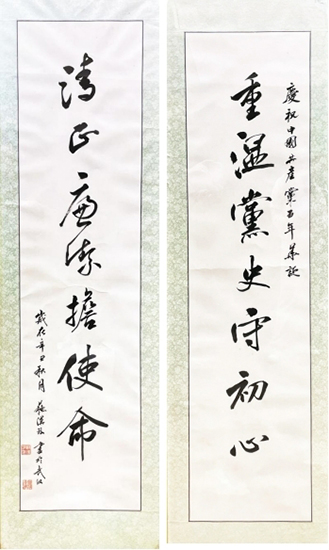 慶祝中國共產黨百年華誕
重溫黨史守初心
清正廉潔擔使命
歲在辛丑秋月 書於武漢